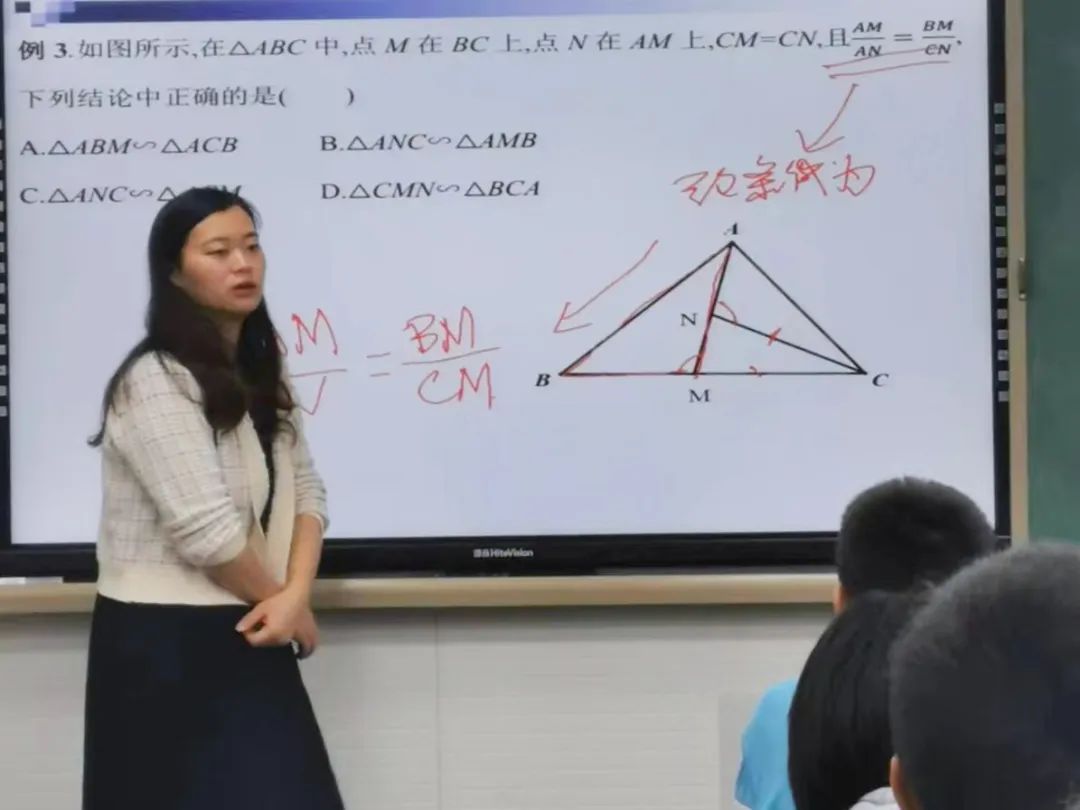 例 3.如图所示,在△ABC 中,点 M 在 BC 上,点 N 在 AM 上,CM=CN,且AM/AN = BM/CN,
下列结论中正确的是(  )
A.△ABM∽△ACB B.△ANC∽△AMB
C.△ANC∽△ D.△CMN∽△BCA
条件
A
M = BM/CM
N
B
M
C
HiteVision